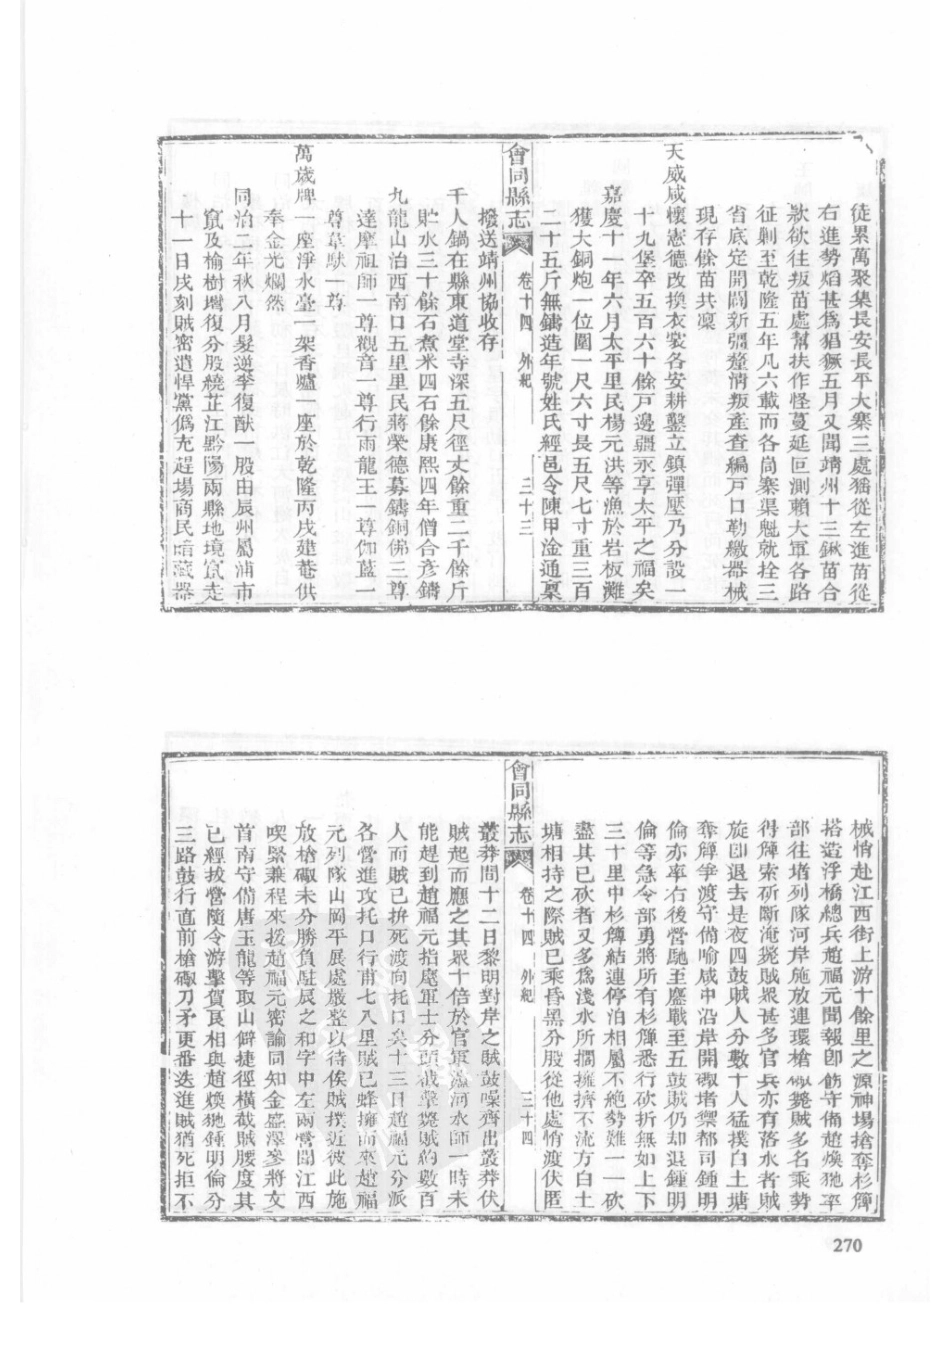 徒累萬聚集長安長平大寨三處猶從左進苗從
右進勢熖甚為猖獗五月又聞靖州十三鍬苗合
欵欲往叛苗處幫扶作怪蔓延叵測賴大軍各路
征剿至乾隆五年凡六載而各崗寨渠魁就拴三
省底定開闢新疆釐淸叛產查編戸口勒繳器械
現存餘苗共凜
天威咸懷憲德改換衣裳各安耕鑿立鎮彈壓乃分設一
十九堡卒五百六十餘戸邊疆永享太平之福矣
嘉慶十一年六月太平里民楊元洪等漁於岩板灘
獲大銅炮一位圍一尺六寸長五尺七寸重三百
二十五斤無鑄造年號姓氏經邑令陳甲淦通稟
會同縣志 卷十四 外紀 三十三
撥送靖州協收存
千人鍋在縣東道堂寺深五尺徑丈餘重二千餘斤
貯水三十餘石煮米四石餘康熙四年僧合彥鑄
九龍山治西南口五里里民蔣榮德募鑄銅佛三尊
達摩祖師一尊觀音一尊行雨龍王一尊伽藍一
尊韋馱一尊
萬歲牌一座淨水臺一架香爐一座於乾隆丙戌建菴供
奉金光爛然
同治二年秋八月髮逆李復猷一股由辰州屬浦市
竄及榆樹灣復分股繞芷江黔陽兩縣地境竄走
十一日戌刻賊密遣悍黨僞充趕場商民暗藏器
械悄赴江西街上游十餘里之源神場搶奪杉簰
搭造浮橋總兵趙福元聞報卽飭守備趙煥弛率
部往堵列隊河岸施放連環槍礮斃賊多名乘勢
得簰索斫斷淹斃賊眾甚多官兵亦有落水者賊
旋卽退去是夜四鼓賊人分數十人猛撲白土塘
奪簰爭渡守備喻咸中沿岸開礮堵禦都司鍾明
倫亦率右後營馳至鏖戰至五鼓賊仍却退鍾明
倫等急令部勇將所有杉簰悉行砍折無如上下
三十里中杉簰結連停泊相屬不絶勢難一一砍
盡其已砍者又多為淺水所擱擁擠不流方白土
塘相持之際賊已乘昏黑分股從他處悄渡伏匿
會同縣志 卷十四 外紀 三十四
叢莽間十二日黎明對岸之賊鼓噪齊出叢莽伏
賊起而應之其眾十倍於官軍灘河水師一時未
能趕到趙福元指麾軍士分頭截擊斃賊約數百
人而賊已拚死渡向托口矣十三日趙福元分派
各營進攻托口行甫七八里賊已蜂擁而來趙福
元列隊山岡平展處嚴整以待俟賊撲近彼此施
放槍礮未分勝負駐辰之和字中左兩營聞江西
喫緊兼程來援趙福元密諭同知金盛澤參將文
首南守備唐玉龍等取山僻捷徑橫截賊腰度其
已經拔營隨令游擊賀良相與趙煥弛鍾明倫分
三路鼓行直前槍礮刀矛更番迭進賊猶死拒不
270